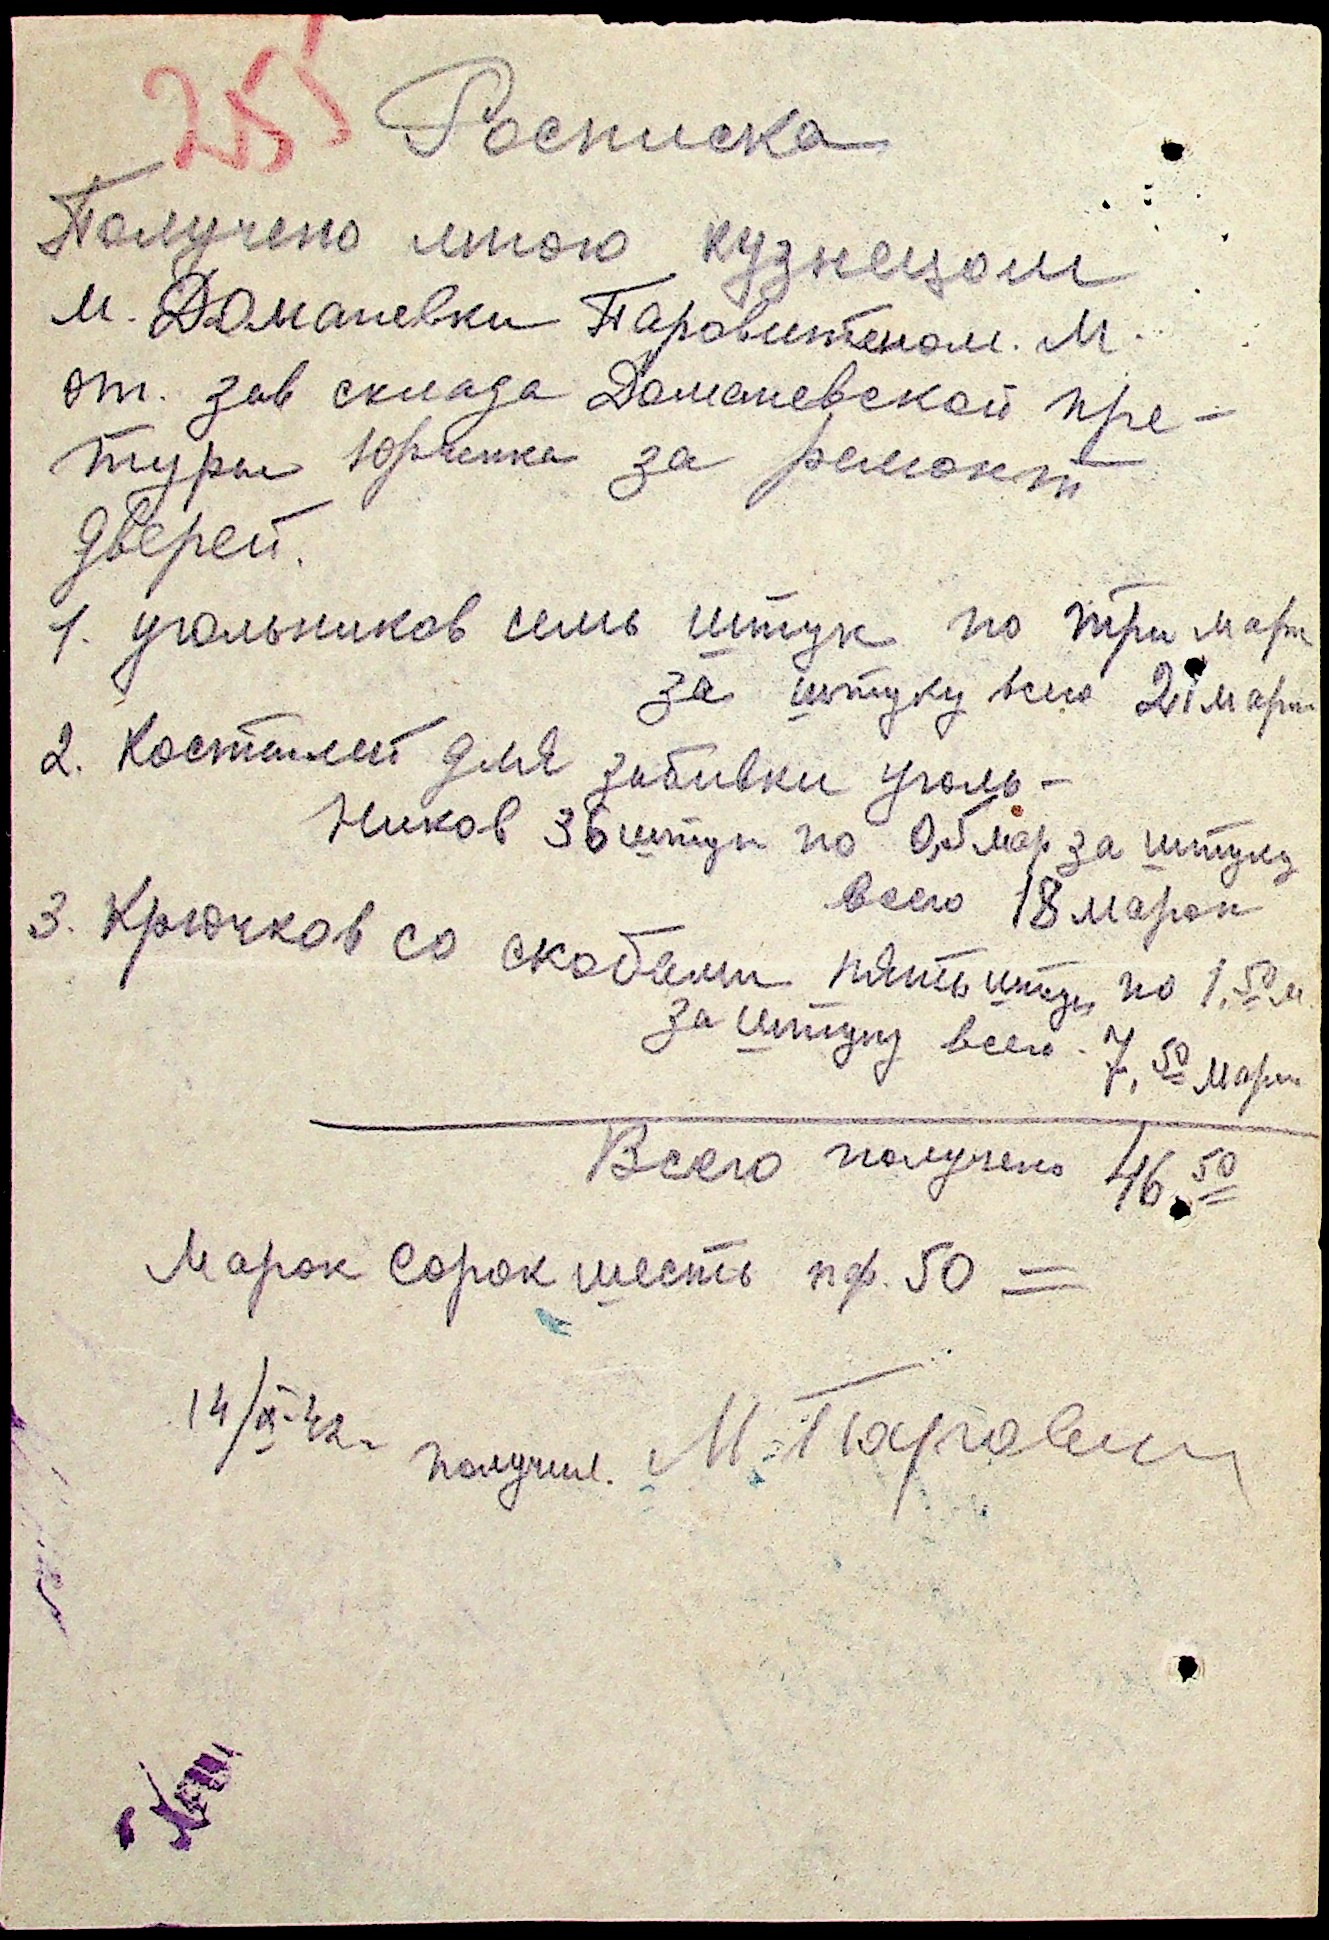 255
Росписка
Получено мною кузнецом
м. Доманевки М.
от. зав склада Доманевской пре-
туры Юрченка за ремонт
дверей.
1. угольников семь штук по три марк
за штуку всего 21 марк
2. Костылей для забивки уголь-
ников 36 штук по 0,5 мар за штуку
всего 18 марок
3. Крючков со скобами пять штук по 1,50 м.
за штуку всего 7,50 марк
Всего получено 46.50
Марок сорок шесть пф. 50 =
14/IX-42 получил. М.